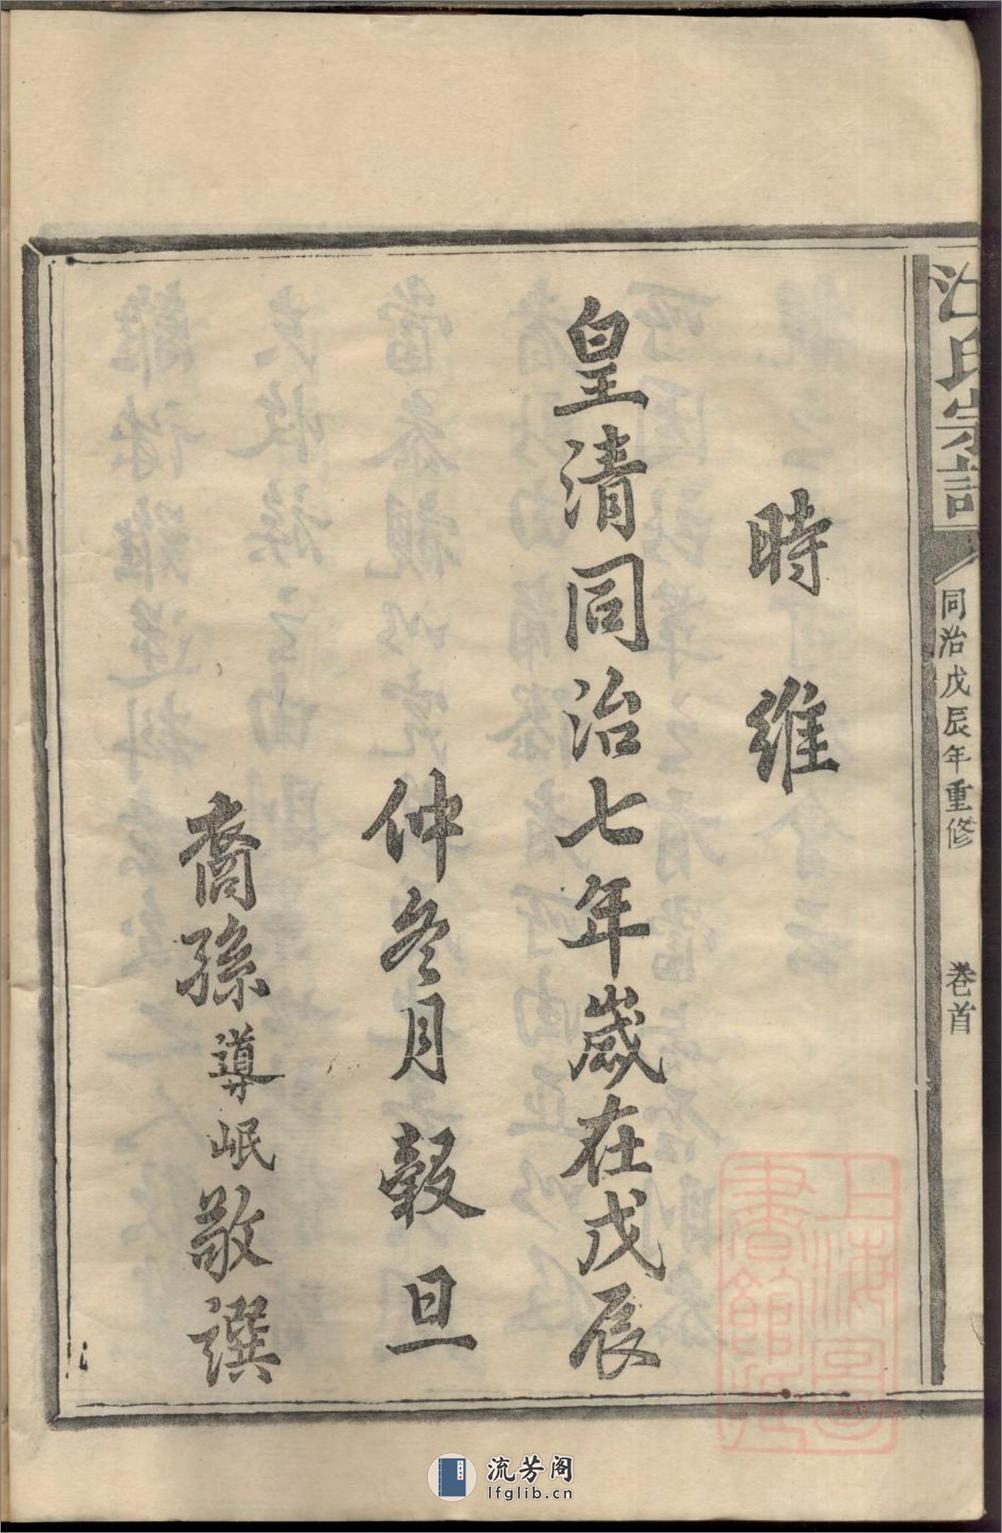 江氏宗譜
同治戊辰年重修
卷首
時維
皇清同治七年歲在戊辰
仲冬月穀旦
裔孫導岷敬譔
上海圖
書館藏
流芳阁
lfglib.cn